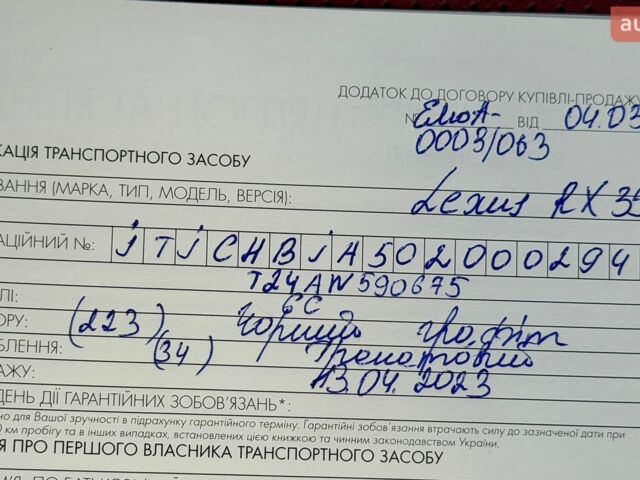 au
ДОДАТОК ДО ДОГОВОРУ КУПІВЛІ-ПРОДАЖУ
№ ЕлюА- ВІД 04.03
0003/063
КАЦІЯ ТРАНСПОРТНОГО ЗАСОБУ
ВАННЯ (МАРКА, ТИП, МОДЕЛЬ, ВЕРСІЯ): Lexus RX 35
АЦІЙНИЙ №: JTJCHBJA502000294
T24AW590675
ЛІ: CC
ОРУ: (223) Чорний графіт
БЛЕННЯ: (34)
АЖУ: 13.04.2023
ДЕНЬ ДІЇ ГАРАНТІЙНИХ ЗОБОВ'ЯЗАНЬ*:
но для Вашої зручності в підрахунку гарантійного терміну. Гарантійні зобов'язання втрачають силу до зазначеної дати при
0 км пробігу та в інших випадках, встановлених цією книжкою та чинним законодавством України.
Я ПРО ПЕРШОГО ВЛАСНИКА ТРАНСПОРТНОГО ЗАСОБУ